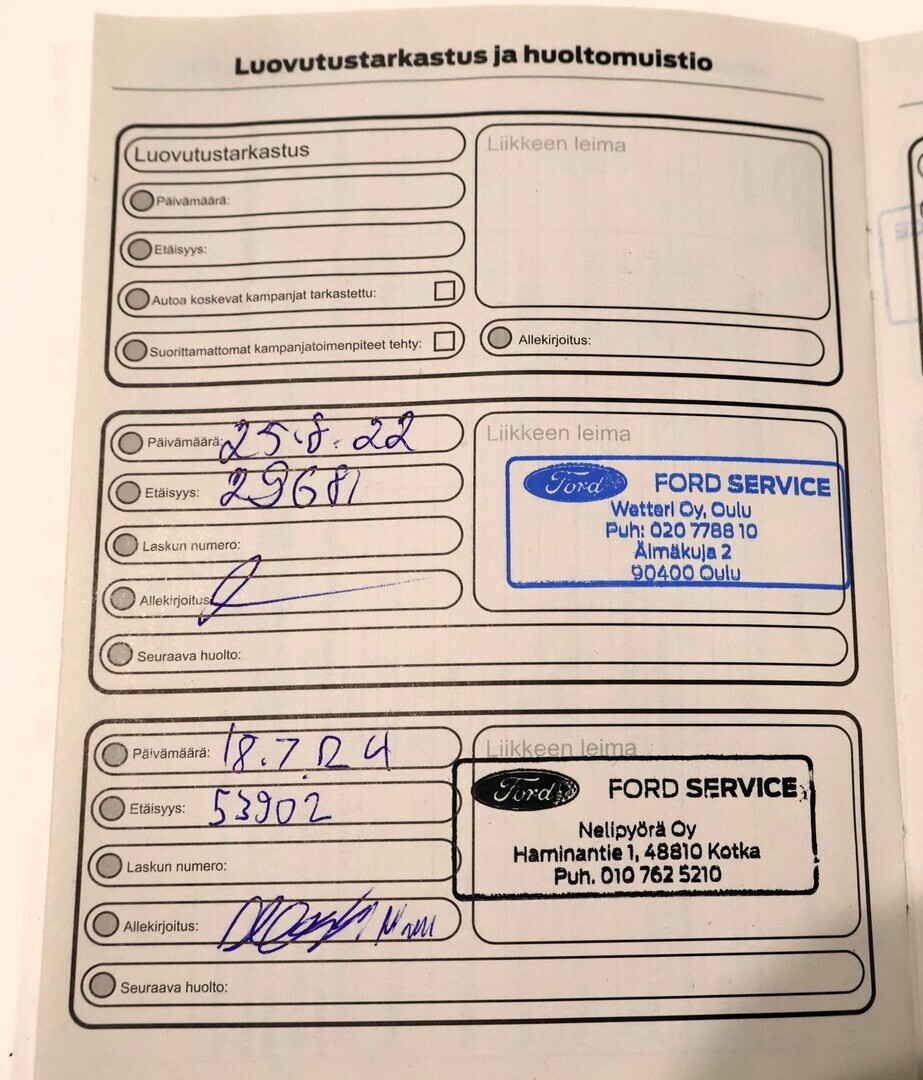 Luovutustarkastus ja huoltomuistio
Luovutustarkastus
Päivämäärä:
Etäisyys:
Autoa koskevat kampanjat tarkastettu:
Suorittamattomat kampanjatoimenpiteet tehty:
Liikkeen leima
Allekirjoitus:
Päivämäärä: 25.8.22
Etäisyys: 29681
Laskun numero:
Allekirjoitus:
Seuraava huolto:
Liikkeen leima
Ford FORD SERVICE
Wetteri Oy, Oulu
Puh: 020 7788 10
Älmäkuja 2
90400 Oulu
Päivämäärä: 18.7.24
Etäisyys: 53902
Laskun numero:
Allekirjoitus:
Seuraava huolto:
Liikkeen leima
Ford FORD SERVICE
Nelipyörä Oy
Haminantie 1, 48810 Kotka
Puh. 010 762 5210